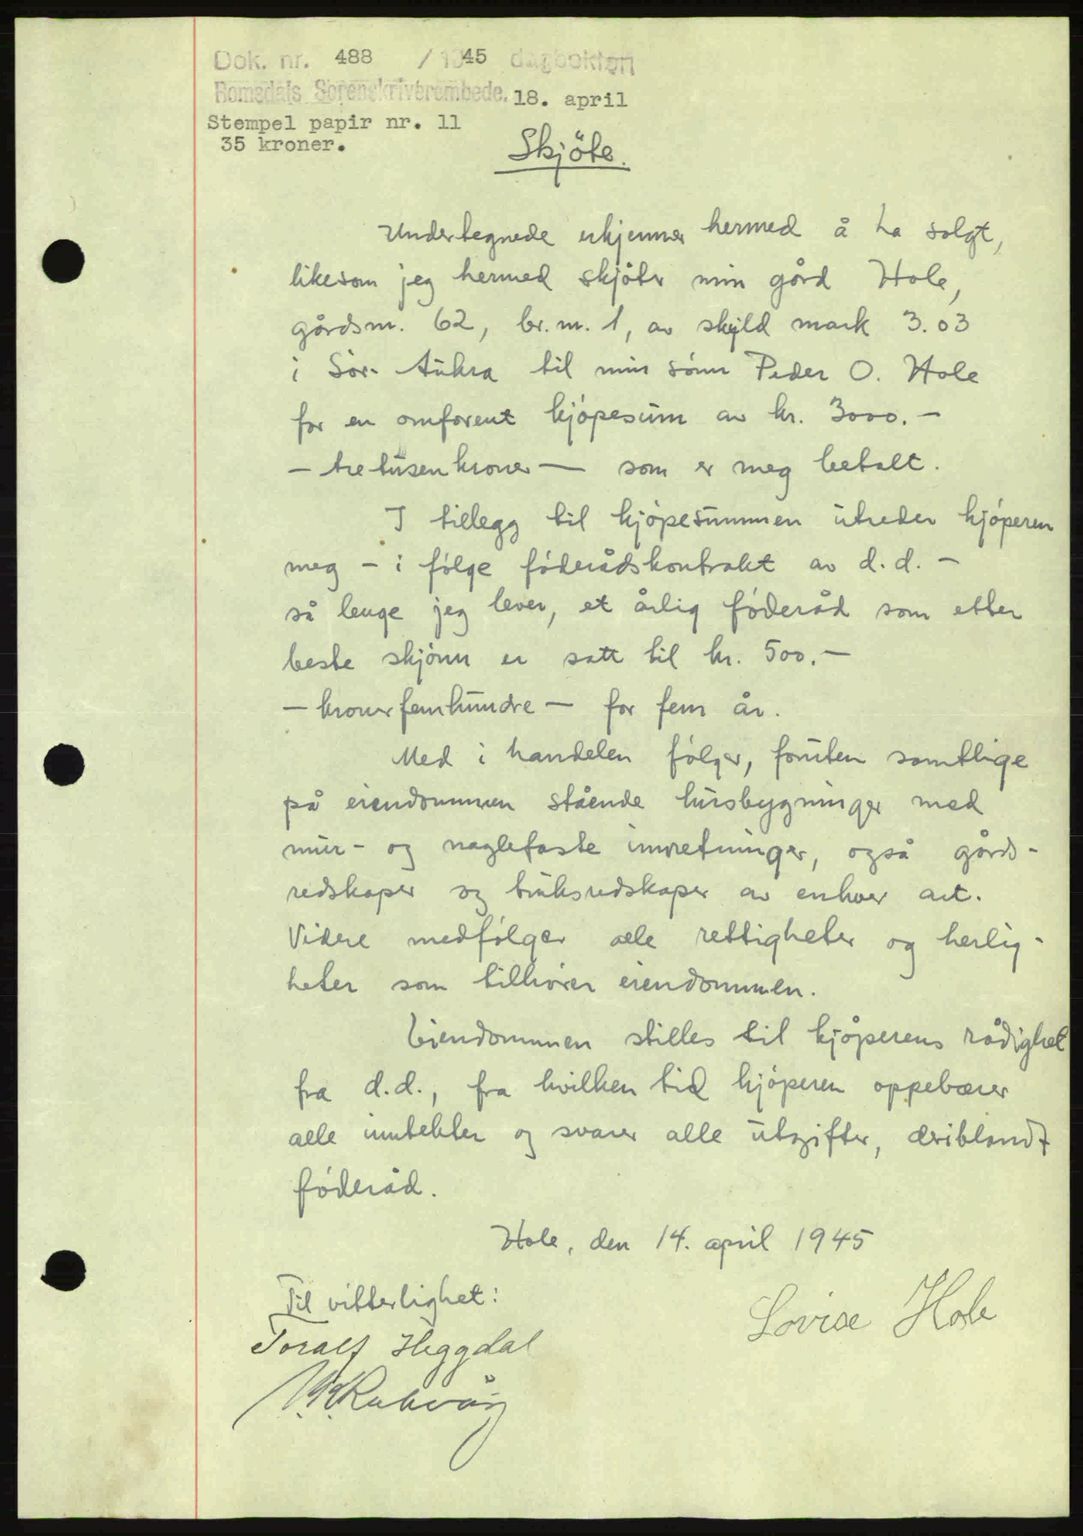 Dok. nr. 488 / 1945 dagboken
Romsdals Sorenskriverembede. 18. april
Stempel papir nr. 11
35 kroner.
Skjöte.
Undertegnede erkjenner hermed å ha solgt,
likesom jeg hermed skjöter min gård Hole,
gårdsnr. 62, br.nr. 1, av skyld mark 3.03
i Sör-Aukra til min sönn Peder O. Hole
for en omforent kjöpesum av kr. 3000.-
- tretusenkroner - som er meg betalt.
I tillegg til kjöpesummen utreder kjöperen
meg - i fölge föderådskontrakt av d.d. -
så lenge jeg lever, et årlig föderåd som etter
beste skjönn er satt til kr. 500.-
- kronerfemhundre - for fem år.
Med i handelen fölger, foruten samtlige
på eiendommen stående husbygninger med
mur- og naglefaste innretninger, også gårds-
redskaper og bruksredskaper av enhver art.
Videre medfölger alle rettigheter og herlig-
heter som tilhörer eiendommen.
Eiendommen stilles til kjöperens rådighet
fra d.d., fra hvilken tid kjöperen oppebærer
alle inntekter og svarer alle utgifter, deriblandt
föderåd.
Hole, den 14. april 1945
Til vitterlighet:
Lovise Hole
Toralf Heggdal
Rakvåg